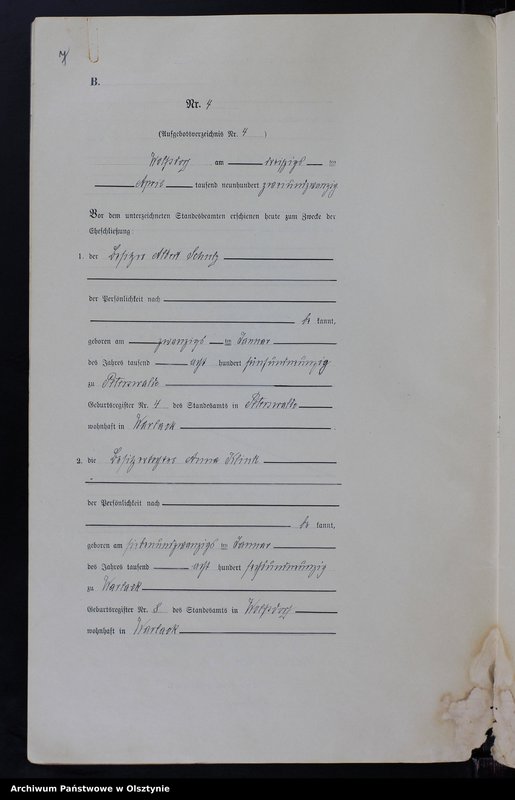 7
B.
Nr. 4
(Aufgebotsverzeichnis Nr. 4 )
Wolfsdorf am dreißigs ten
April tausend neunhundert zweiundzwanzig
Vor dem unterzeichneten Standesbeamten erschienen heute zum Zwecke der
Eheschließung:
1. der Besitzer Albert Schulz
der Persönlichkeit nach
be kannt,
geboren am zwanzigs ten Januar
des Jahres tausend acht hundert fünfundneunzig
zu Peterswalde
Geburtsregister Nr. 4 des Standesamts in Peterswalde
wohnhaft in Warlack
2. die Besitzertochter Anna Klink
der Persönlichkeit nach
be kannt,
geboren am siebenundzwanzigs ten Januar
des Jahres tausend acht hundert sechsundneunzig
zu Warlack
Geburtsregister Nr. 8 des Standesamts in Wolfsdorf
wohnhaft in Warlack
Archiwum Państwowe w Olsztynie